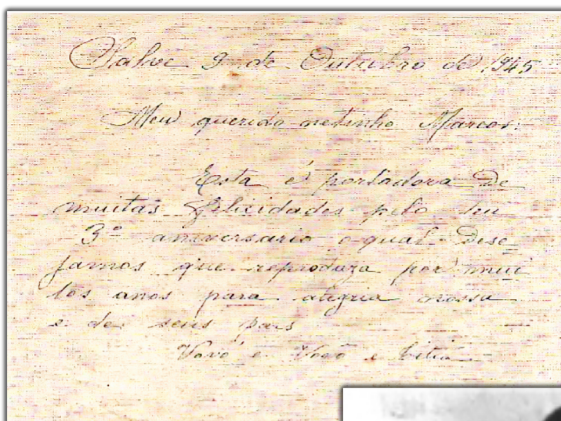 Salve 9 de Outubro de 1945
Meu querido netinho Marcos:
Esta é portadora de
muitas felicidades pelo teu
3º aniversario o qual dese=
jamos que reproduza por mui=
tos anos para alegria nossa
e de seus pais
Vovó e Vovô e